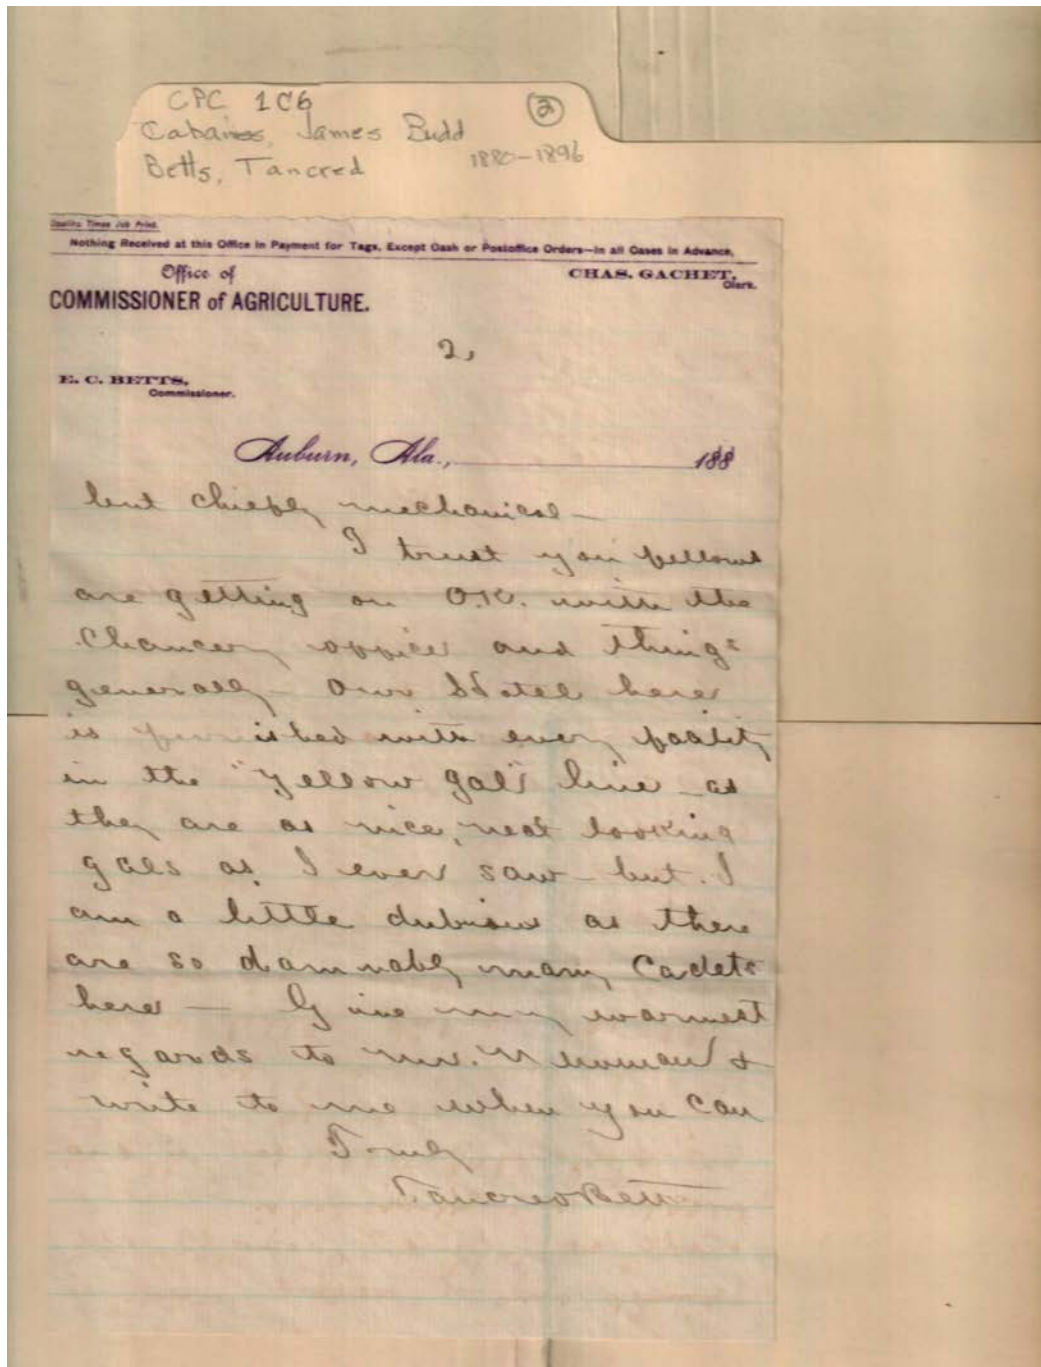 CPC 1C6
2
Cabaniss, James Budd
1880-1896
Betts, Tancred
Opelika Times Job Print.
Nothing Received at this Office in Payment for Tags, Except Cash or Postoffice Orders—in all Cases in Advance.
Office of
CHAS. GACHET,
Clerk.
COMMISSIONER of AGRICULTURE.
2,
E. C. BETTS,
Commissioner.
Auburn, Ala., 188
but chiefly mechanical—
I trust you fellows
are getting on O.K. with the
Chancery office and things
generally— Our Hotel here
is furnished with every facility
in the "yellow gal" line—as
they are as nice, neat looking
gals as I ever saw—but. I
am a little dubious as there
are so damnably many Cadets
here— Give my warmest
regards to Mr. &
write to me when you can
Truly
Tancred Betts